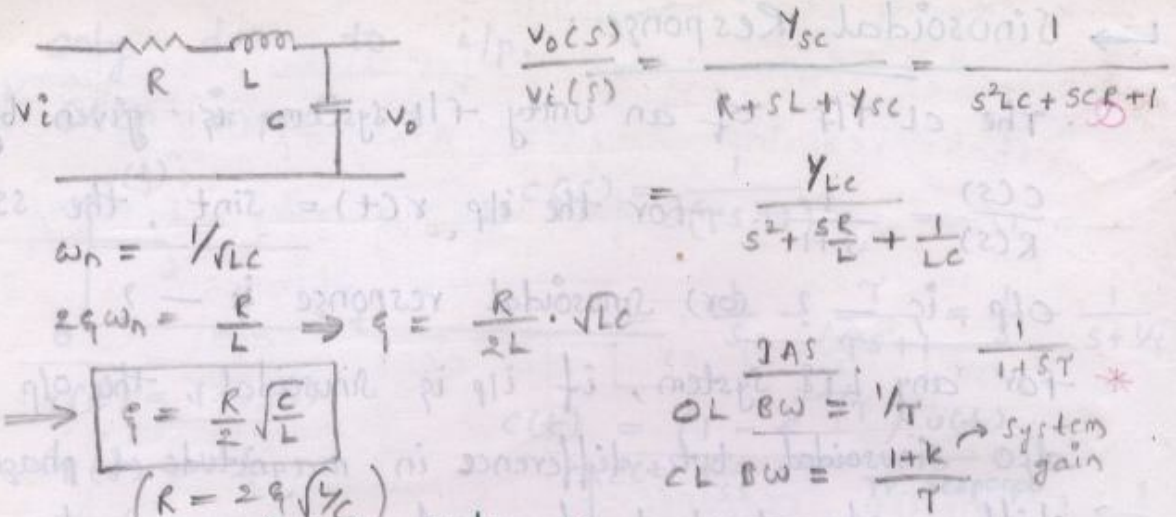 R L C Vi Vo
Vo(s)/Vi(s) = (1/sc)/(R+SL+1/sc) = 1/(s²LC+SCR+1)
= (1/LC)/(s²+SR/L+1/LC)
ωn = 1/√LC
2ξωn = R/L ⇒ ξ = R/2L · √LC
⇒ ξ = R/2 √C/L
(R = 2ξ√L/C)
IAS : 1/(1+ST)
OL BW = 1/T
CL BW = (1+K)/T → system gain